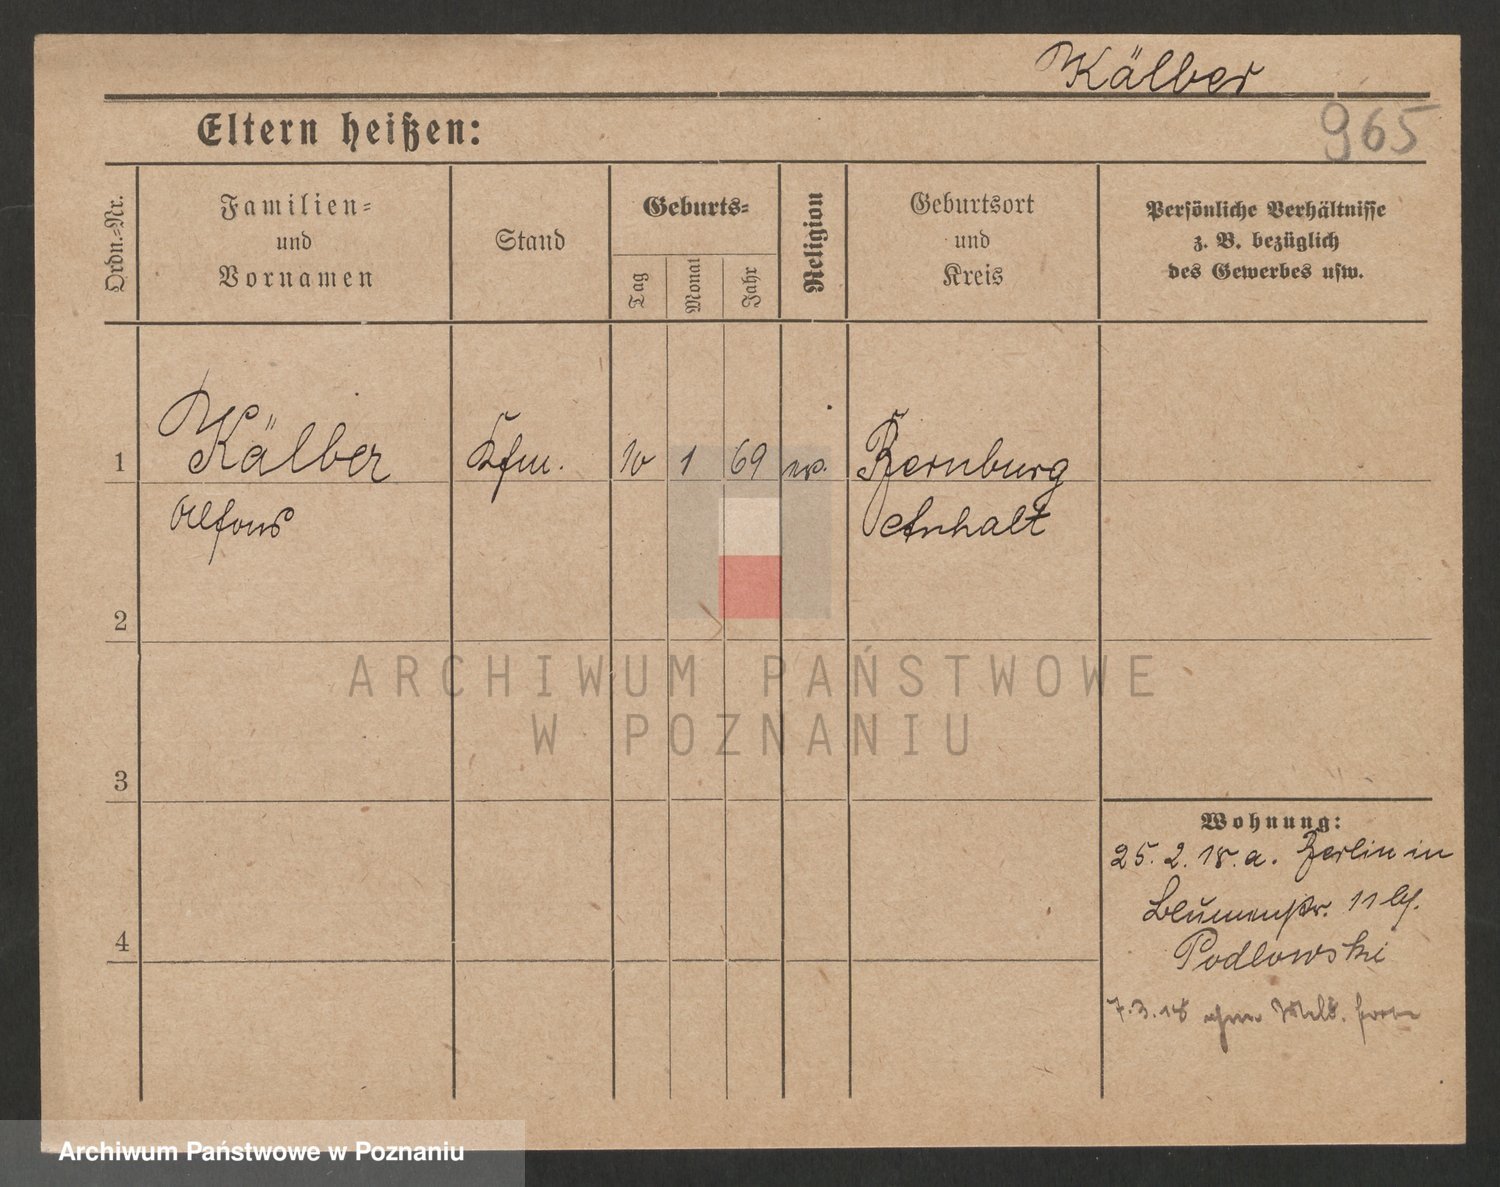 Kälber
965
Eltern heißen:
Ordn.-Nr.
Familien-
und
Vornamen
Stand
Geburts-
Tag
Monat
Jahr
Religion
Geburtsort
und
Kreis
Persönliche Verhältnisse
z. B. bezüglich
des Gewerbes usw.
1
Kälber
Alfons
Kfm.
10
1
69
Bernburg
Anhalt
2
3
4
Wohnung:
25. 2. 18. a. Berlin in
Blumenstr. 11 b/.
Podlowski
7.3.18 ohne Meld. fort
ARCHIWUM PAŃSTWOWE
W POZNANIU
Archiwum Państwowe w Poznaniu